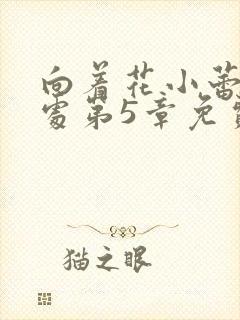 向着花小蕾
处第5章免
猫之眼